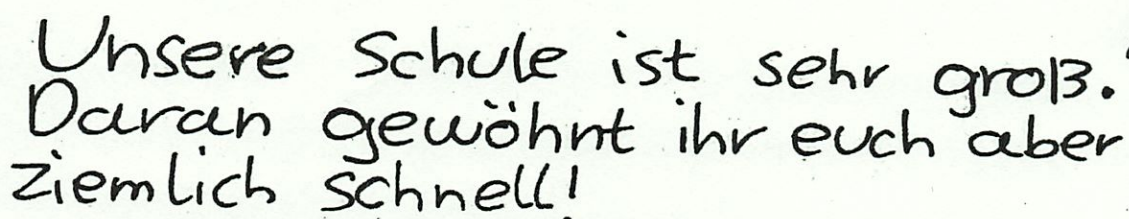 Unsere Schule ist sehr groß.
Daran gewöhnt ihr euch aber
ziemlich schnell!